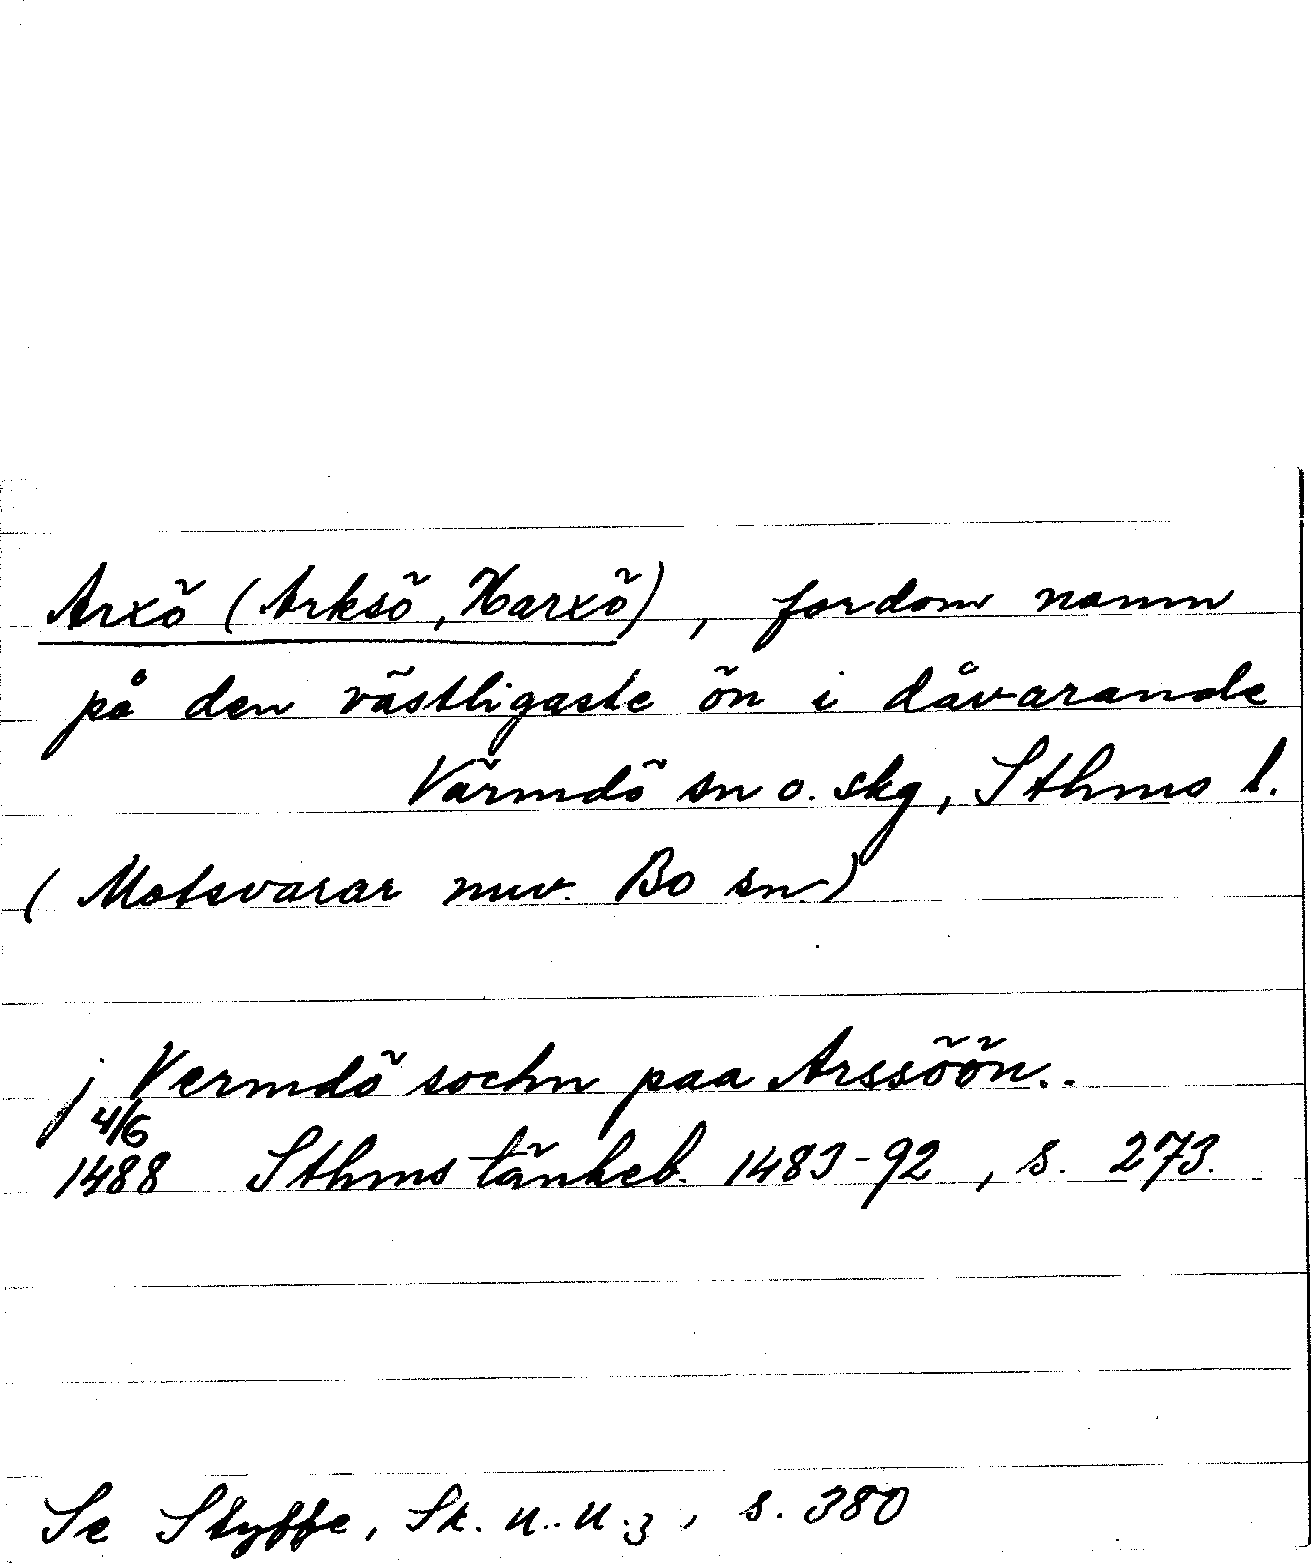 Arxö (Arksö, Harxö), fordom namn
på den västligaste ön i dåvarande
Värmdö sn o. skg, Sthms l.
(Motsvarar nuv. Bo sn.)
j Vermdö sochn paa Arssöön..
4/6
1488 Sthms tänkeb. 1483-92, s. 273.
Se Styffe, Sk. u. u. 3, s. 380